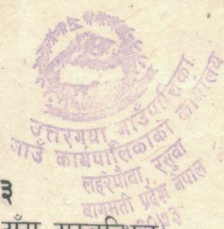 उत्तरगया गाउँपालिका
गाउँ कार्यपालिकाको कार्यालय
लहरेपौवा, रसुवा
बागमती प्रदेश नेपाल
२०७३
३